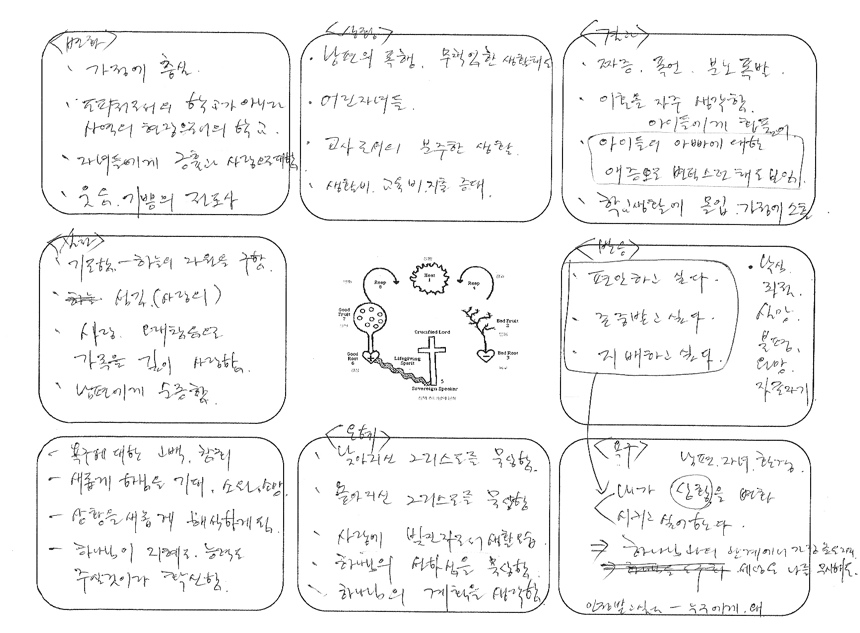 <변화>
· 가정에 충실.
· 도피처로서의 학교가 아니라
사역의 현장으로서의 학교.
· 자녀들에게 긍휼과 사랑으로 대함
· 웃음, 기쁨의 전도사
<상황>
· 남편의 폭행, 무책임한 생활태도
· 어린자녀들.
· 교사로서의 분주한 생활.
· 생활비, 교육비 지출 증대.
<결과>
· 짜증, 폭언, 분노폭발.
· 이혼을 자주 생각함.
아이들에게
· 아이들의 아빠에 대한
애증으로 변덕스런 태도 보임.
· 학교생활에 몰입, 가정에 소홀.
· 기도함 - 하늘의 자원을 구함.
· 섬김. (사랑의)
· 사랑,
가족을 깊이 사랑함.
· 남편에게 순종함.
Heat
1
Reap
Reap
Good
Fruit
7
Bad Fruit
2
Crucified Lord
Good
Root
6
Lifegiving
Spirit
Bad Root
3
5
Sovereign Speaker
<반응>
· 편안하고 싶다.
· 존중받고 싶다.
· 지배하고 싶다.
· 낙심
좌절,
실망,
불평,
원망,
- 욕구에 대한 고백, 참회
- 새롭게 하심을 기대, 소원, 소망.
- 상황을 새롭게 해석하게 됨.
- 하나님이 지혜로, 능력도
주실것이라 확신함.
<은혜>
· 낮아지신 그리스도를 묵상함.
· 높아지신 그리스도를 묵상함
· 사랑에 빚진자로서 생활
· 하나님의 선하심을 묵상함.
· 하나님의 계획을 생각함.
<욕구>
남편, 자녀, 환경.
내가 상황을 변화
시키고 싶어한다.
⇒ 하나님과의 관계에서 가장
⇒ 세상도 나를
인정받고 싶다 - 누구에게, 왜